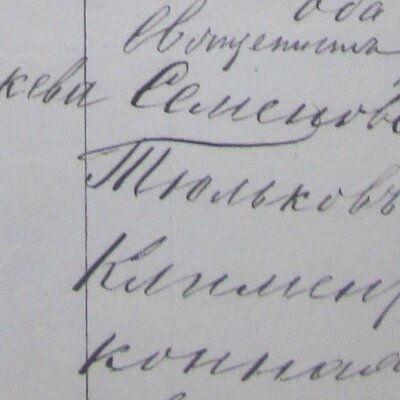 оба
Священника
кева Семенов
Тюльковъ
Климен
конная